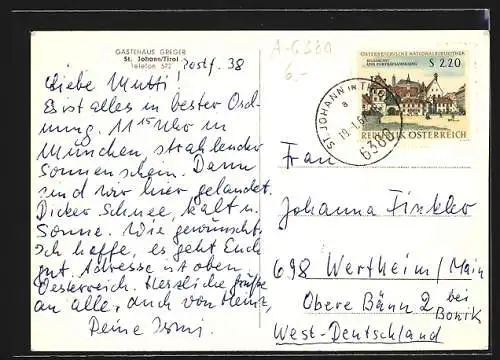 GÄSTEHAUS GREGER
St. Johann/Tirol
Telefon 572
Postf. 38
A-6380
6.-
Liebe Mutti!
Es ist alles in bester Ord-
nung. 11 15 Uhr in
München, strahlender
Sonnenschein. Dann
sind wir hier gelandet.
Dicker Schnee, kalt u.
Sonne. Wie gewünscht.
Ich hoffe, es geht Euch
gut. Adresse ist oben
Oesterreich. Herzliche Grüße
an alle, auch von Heinz,
Deine Irmi.
ÖSTERREICHISCHE NATIONALBIBLIOTHEK
S 2.20
REPUBLIK ÖSTERREICH
ST. JOHANN IN TIROL
6380
Frau
Johanna Finkler
698 Wertheim/Main
Obere Bänn 2 bei
Bonik
West-Deutschland